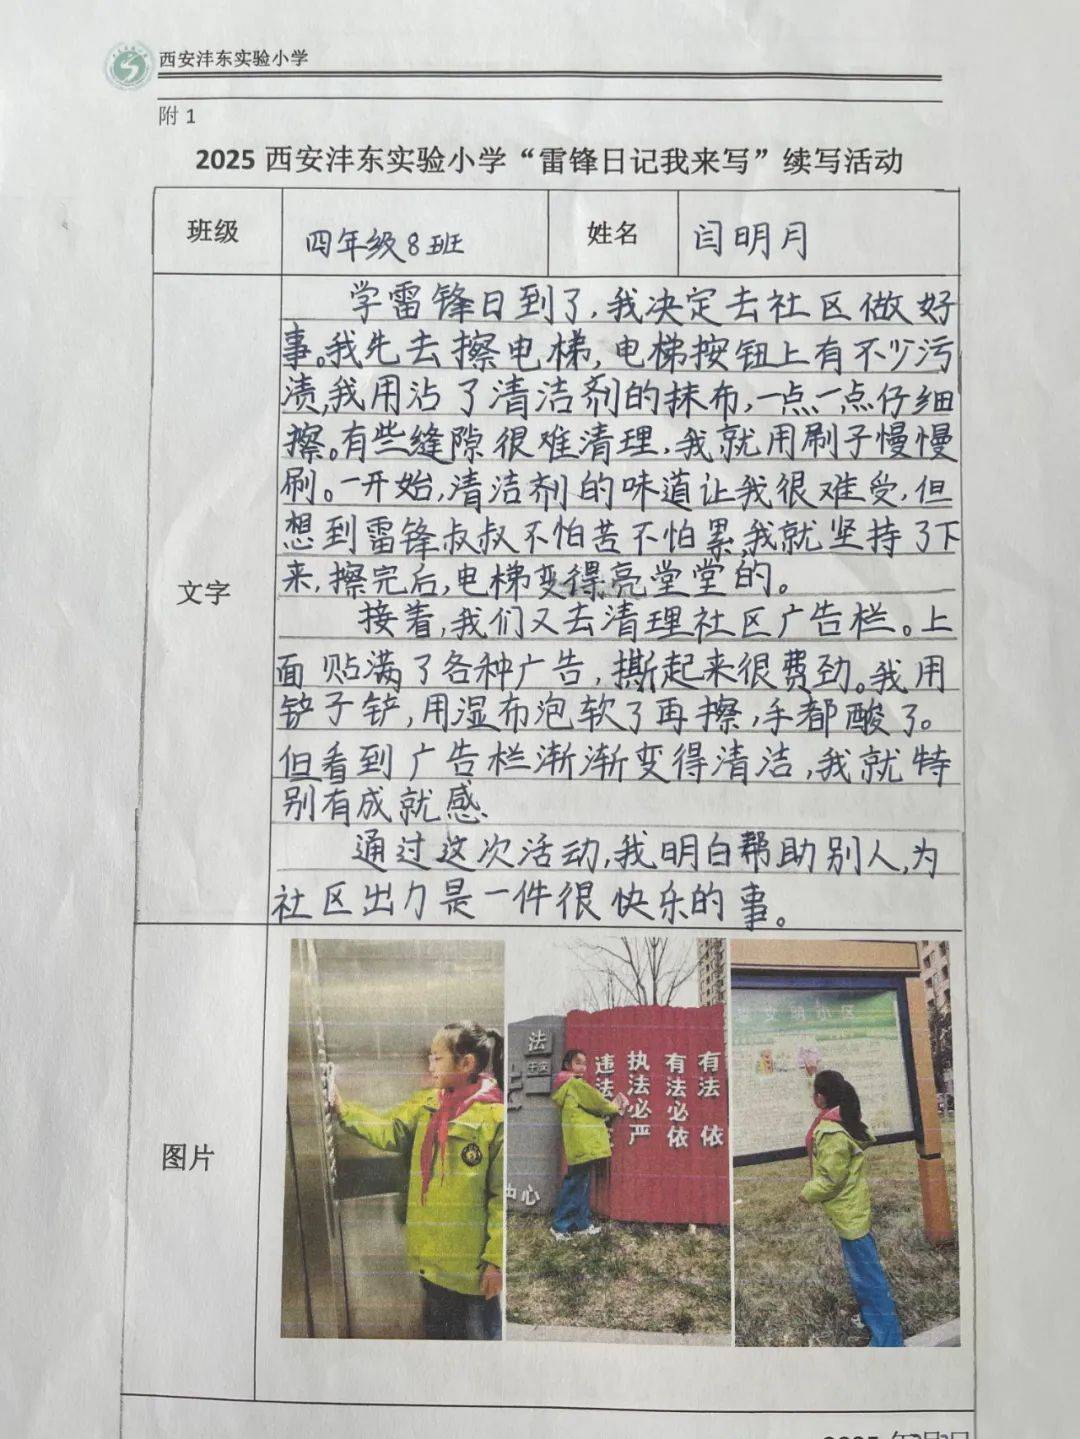 西安沣东实验小学
附 1
2025 西安沣东实验小学“雷锋日记我来写”续写活动
班级
四年级8班
姓名
闫明月
文字
学雷锋日到了,我决定去社区做好
事。我先去擦电梯,电梯按钮上有不少污
渍,我用沾了清洁剂的抹布,一点一点仔细
擦。有些缝隙很难清理,我就用刷子慢慢
刷。一开始,清洁剂的味道让我很难受,但
想到雷锋叔叔不怕苦不怕累,我就坚持了下
来,擦完后,电梯变得亮堂堂的。
接着,我们又去清理社区广告栏。上
面贴满了各种广告,撕起来很费劲。我用
铲子铲,用湿布泡软了再擦,手都酸了。
但看到广告栏渐渐变得清洁,我就特
别有成就感
通过这次活动,我明白帮助别人,为
社区出力是一件很快乐的事。
图片
法
中心
违法
执法必严
有法必依
有法 依